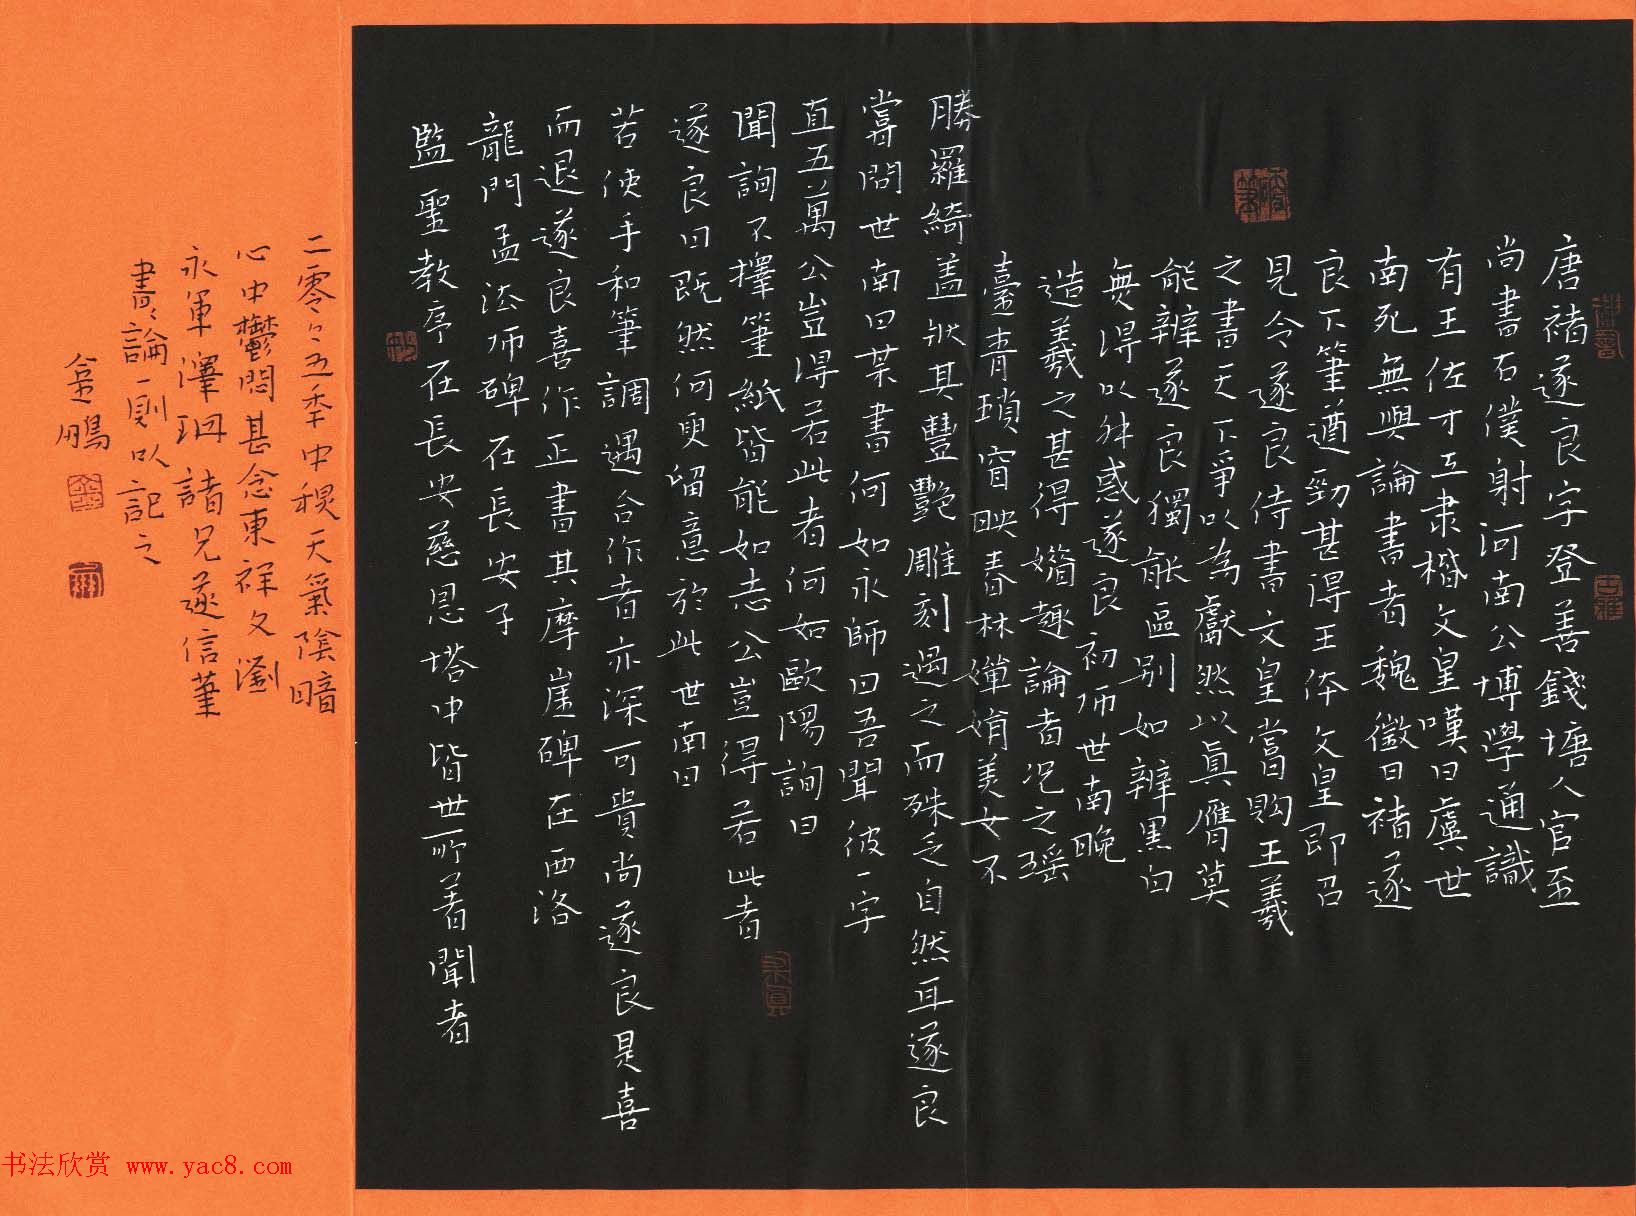 唐褚遂良字登善錢塘人官至
尚書右僕射河南公博學通識
有王佐才工隶楷文皇嘆曰虞世
南死無與論書者魏徵曰褚遂
良下筆遒勁甚得王体文皇即召
見令遂良侍書文皇嘗購王羲
之書天下爭以為獻然以真贋莫
能辨遂良獨能區别如辨黑白
無得以舛惑遂良初师世南晚
造羲之甚得媚趣論者况之瑶
臺青瑣窗映春林嬋娟美女不
勝羅綺盖狀其豐艷雕刻過之而殊乏自然耳遂良
嘗問世南曰某書何如永師曰吾聞彼一字
直五萬公豈得若此者何如歐陽詢曰
聞詢不擇筆紙皆能如志公豈得若此者
遂良曰既然何更留意於此世南曰
若使手和筆調遇合作者亦深可貴尚遂良是喜
而退遂良喜作正書其摩崖碑在西洛
龍門孟法师碑在長安子
監聖教序在長安慈恩塔中皆世所著聞者
二零々五年中秋天氣陰暗
心中鬱悶甚念東祥文劉
永軍澤珊諸兄遂信筆
書書論一則以記之
金鵬
书法欣赏 www.yac8.com